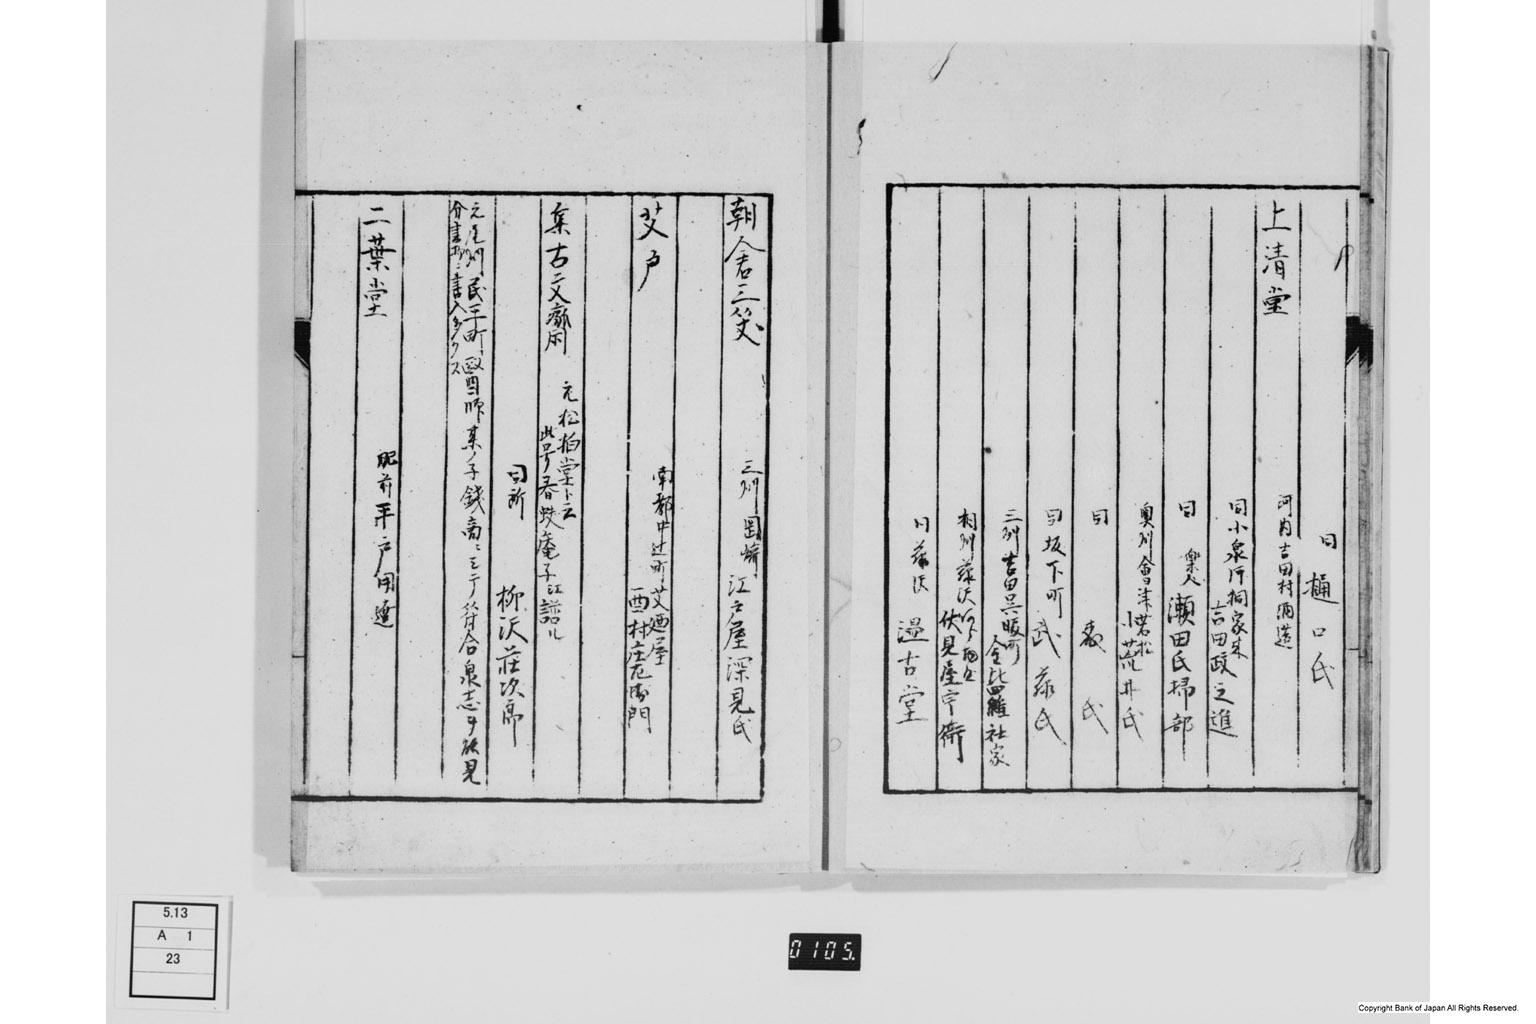 同 樋口氏
上清堂
河内吉田村酒造
同小泉
吉田政之進
同 楽人 瀬田氏掃部
奥州會津若松
荒井氏
同 森氏
同坂下町 武藤氏
三州吉田呉服町
金比羅社家
相州藤沢
伏見屋宇衛
同藤沢 温古堂
朝倉三笑
三州岡崎 江戸屋深見氏
艾戸
南都中辻町艾廼屋
西村庄左衛門
集古文齋
元松柏堂ト云
此号春蛟庵子江譲ル
同所 柳沢荘次郎
元尾州民王町医師某ノ子銭商ニシテ符合泉志ヲ
分書ニ書入多クス
二葉堂
肥前平戸用達
5.13
A 1
23
0105.
Copyright Bank of Japan All Rights Reserved.